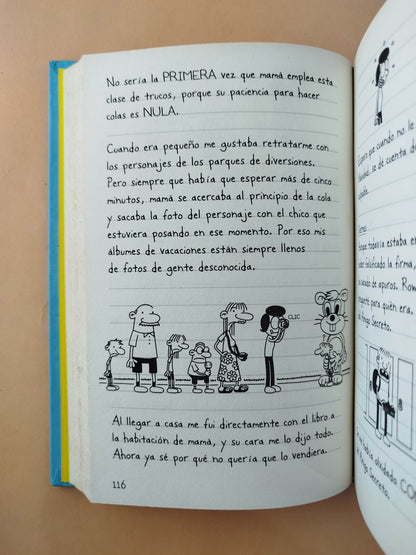 No sería la PRIMERA vez que mamá emplea esta
clase de trucos, porque su paciencia para hacer
colas es NULA.
Cuando era pequeño me gustaba retratarme con
los personajes de los parques de diversiones.
Pero siempre que había que esperar más de cinco
minutos, mamá se acercaba al principio de la cola
y sacaba la foto del personaje con el chico que
estuviera posando en ese momento. Por eso mis
álbumes de vacaciones están siempre llenos
de fotos de gente desconocida.
CLIC
Al llegar a casa me fui directamente con el libro a
la habitación de mamá, y su cara me lo dijo todo.
Ahora ya sé por qué no quería que lo vendiera.
116
que cuando no le
se de cuenta d
todavía es
falsificado la firma,
de apuros. Row
para quién era.
Amigo Secreto.
había olvidado CO
Secreto.